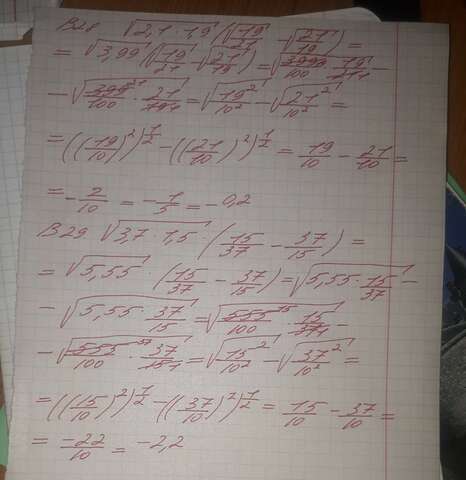 B28 √2,1 · 1,9 (√19/21 - √21/19) =
= √3,99 (√19/21 - √21/19) = √399/100 · 19/21 -
- √399/100 · 21/19 = √19²/10² - √21²/10² =
= ((19/10)²)^1/2 - ((21/10)²)^1/2 = 19/10 - 21/10 =
= -2/10 = -1/5 = -0,2
B29 √3,7 · 1,5 · (15/37 - 37/15) =
= √5,55 · (15/37 - 37/15) = √5,55 · 15/37 -
- √5,55 · 37/15 = √555/100 · 15/37 -
- √555/100 · 37/15 = √15²/10² - √37²/10² =
= ((15/10)²)^1/2 - ((37/10)²)^1/2 = 15/10 - 37/10 =
= -22/10 = -2,2